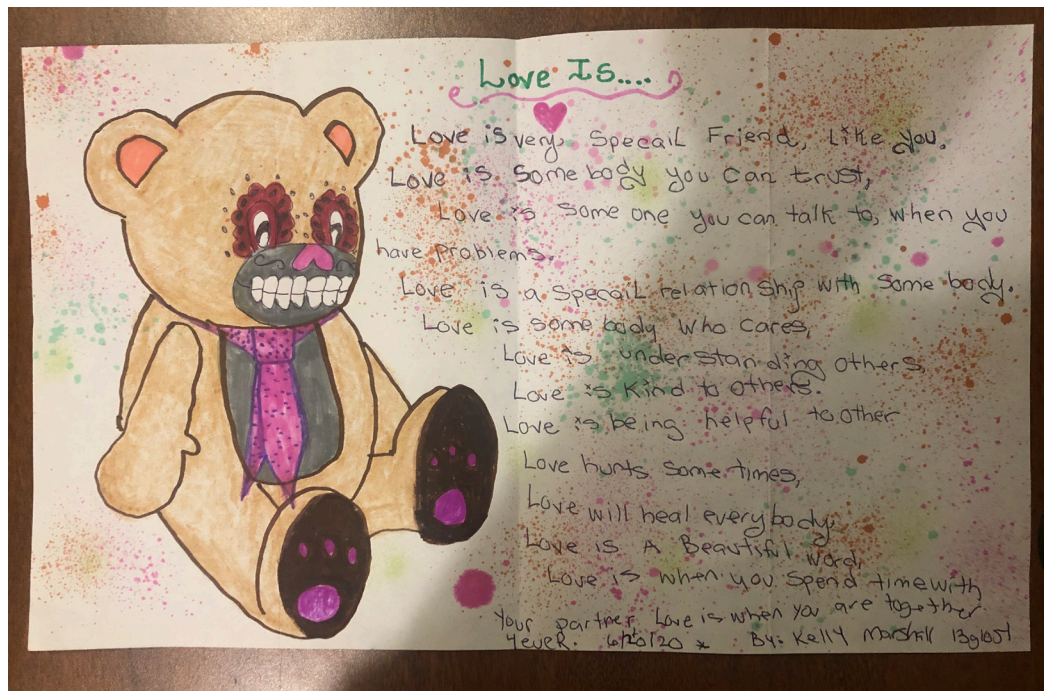 Love Is....
Love is very Specail Friend, like you.
Love is some body you can trust,
Love is some one you can talk to, when you
have problems.
Love is a specail relationship with some body.
Love is some body who cares,
Love is understanding others
Love is kind to others.
Love is being helpful to other
Love hurts some times,
Love will heal every body,
Love is A Beautiful word,
Love is when you spend time with
your partner Love is when you are together
4eveR. 6/20/20 * By: Kelly Marshill